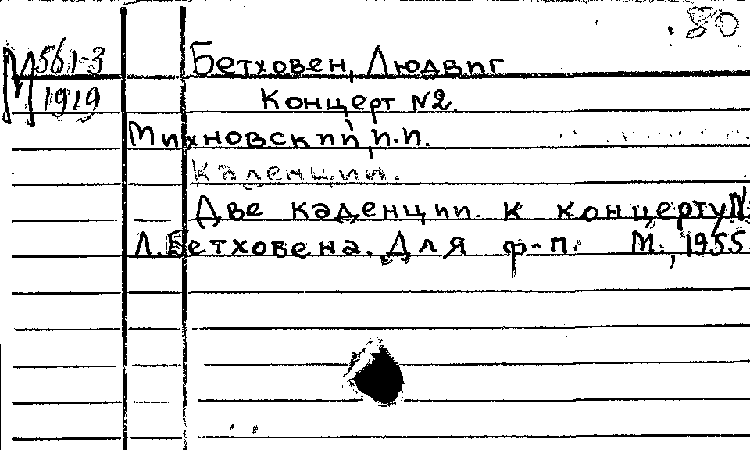 80
М 561-3
1919
Бетховен, Людвиг
Концерт N2.
Михновский, И.И.
Каденции.
Две каденции. к концерту N
Л. Бетховена. Для ф-п. М., 1955